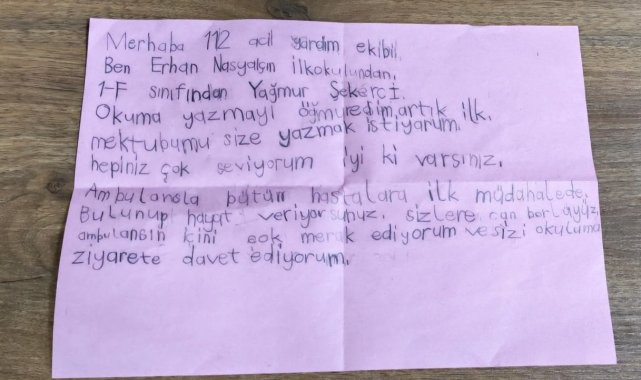 Merhaba 112 acil yardım ekibi!
Ben Erhan Nasyalçın ilkokulundan,
1-F sınıfından Yağmur Şekerci.
Okuma yazmayı öğmuredim,artık ilk,
mektubumu size yazmak istiyarum.
hepiniz çok seviyorum iyi ki varsınız.
Ambulansla bütün hastalara ilk müdahalede,
Bulunup hayat veriyorsunuz. sizlere can borluyuz,
ambulansın içini çok merak ediyorum ve sizi okuluma
ziyarete davet ediyorum.